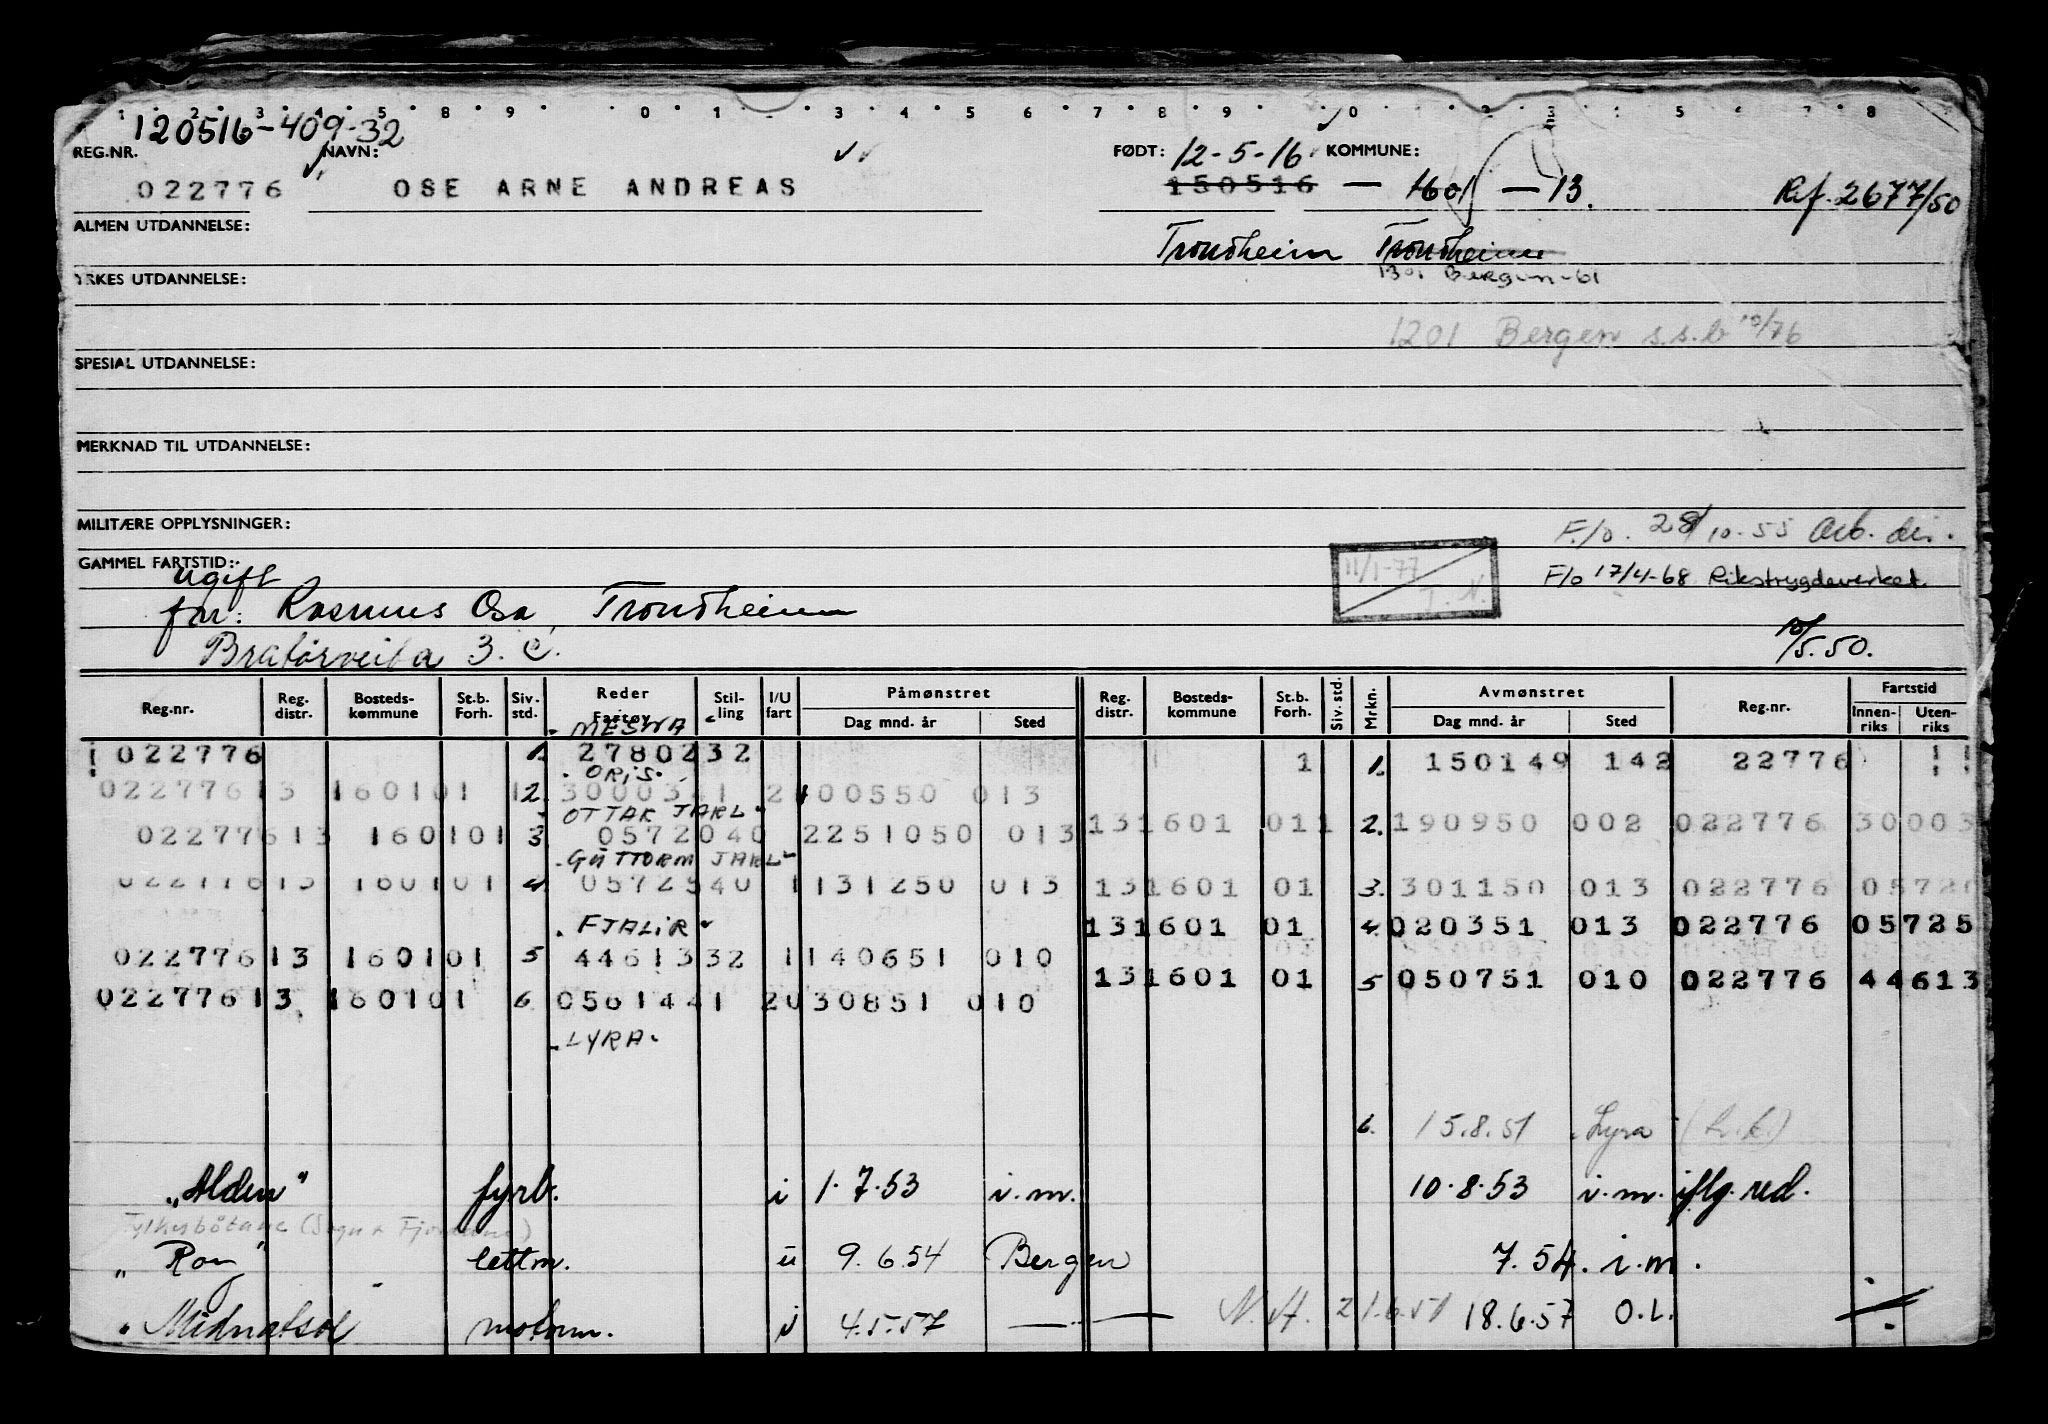 120516-409-32
REG.NR. NAVN: FØDT: 12-5-16 KOMMUNE:
022776 OSE ARNE ANDREAS 150516 — 1601 — 13. Ref. 2677/50
ALMEN UTDANNELSE: Trondheim Trondheim
YRKES UTDANNELSE: 1301 Bergen-61
1201 Bergen s.s.b 10/76
SPESIAL UTDANNELSE:
MERKNAD TIL UTDANNELSE:
MILITÆRE OPPLYSNINGER: F/o. 28/10-55 Arb. dir.
GAMMEL FARTSTID: ugift 11/1-77 F/o 17/4-68 Rikstrygdeverket.
far: Rasmus Osa, Trondheim
3. C. 10/5.50.
Reg.nr. Reg. distr. Bosteds-kommune St.b. Forh. Siv. std. Reder Fartøy Stil-ling I/U fart Påmønstret Dag mnd. år Sted Reg. distr. Bosteds-kommune St.b. Forh. Siv. std. Mrkn. Avmønstret Dag mnd. år Sted Reg.nr. Fartstid Innen-riks Uten-riks
MESNA
022776 1. 2780232 1 1. 150149 142 22776
ORIS.
02277613 160101 12. 3000341 2100550 013
OTTAR JARL
131601 011 2. 190950 002 022776 30003
02277613 160101 3 0572040 2251050 013
GUTTORM JARL
02277613 160101 4 0572540 1131250 013 131601 01 3. 301150 013 022776 05720
FJALIR
131601 01 4. 020351 013 022776 05725
02277613 160101 5 4461332 1140651 010
131601 01 5 050751 010 022776 44613
02277613 160101 6. 0561441 2030851 010
LYRA.
6. 15.8.51 Lyra
"Alden" fyrb. i 1.7.53 i.m. 10.8.53 i.m. iflg. red.
Fylkesbåtane (Sogn & Fjordane)
"Roy" lettm. u 9.6.54 Bergen 7.54. i.m.
Midnatsol motorm. i 4.5.57 — — N.A. 21.6.57 18.6.57 O.L.